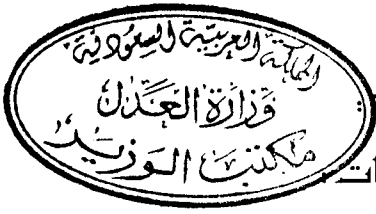 المملكة العربية السعودية
وزارة العدل
مكتب الوزير
ات